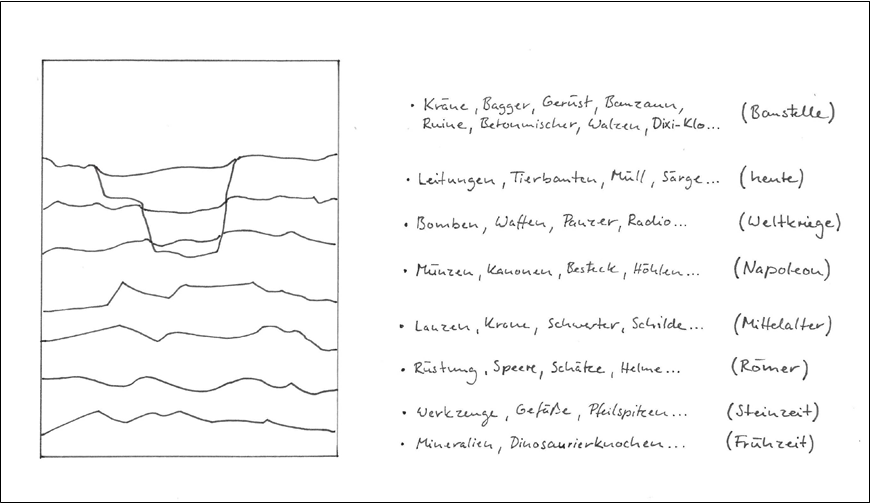 • Kräne, Bagger, Gerüst, Bauzaun,
Ruine, Betonmischer, Walzen, Dixi-Klo... (Baustelle)
• Leitungen, Tierbauten, Müll, Särge... (heute)
• Bomben, Waffen, Panzer, Radio... (Weltkriege)
• Münzen, Kanonen, Besteck, Höhlen... (Napoleon)
• Lanzen, Krone, Schwerter, Schilde... (Mittelalter)
• Rüstung, Speere, Schätze, Helme... (Römer)
• Werkzeuge, Gefäße, Pfeilspitzen... (Steinzeit)
• Mineralien, Dinosaurierknochen... (Frühzeit)